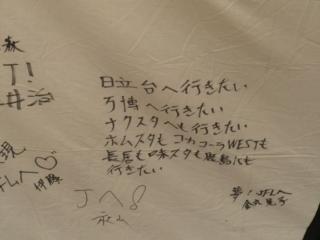 森
T!
井治
日立台へ行きたい
万博へ行きたい
ナクスタへも行きたい
ホムスタも コカ・コーラWESTも
長居も 味スタも 鹿島にも
行きたい
現
JFLへ♡
伊藤
Jへ
夢!JFLへ